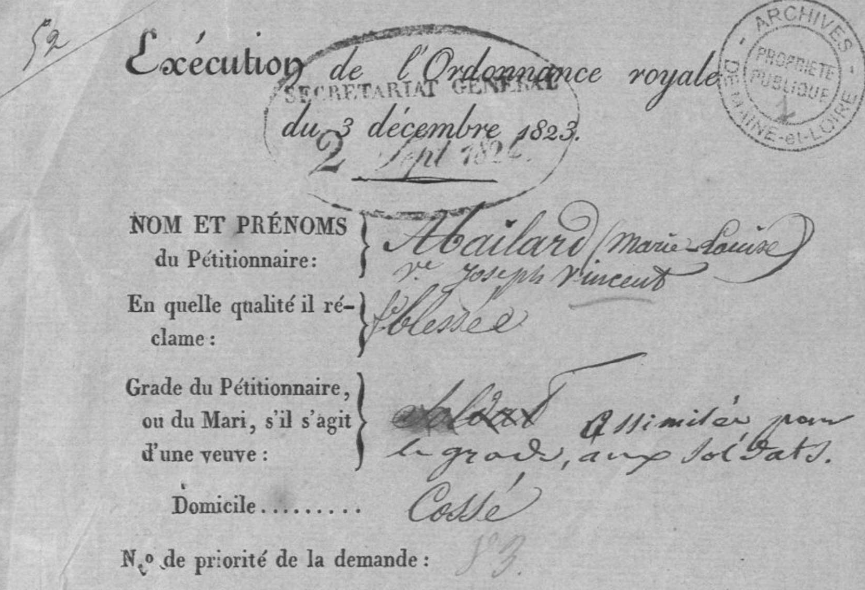 52
Exécution de l'Ordonnance royale
du 3 décembre 1823.
SECRETARIAT GENERAL
2 Sept 182
ARCHIVES DE MAINE-et-LOIRE
PROPRIETE
PUBLIQUE
NOM ET PRÉNOMS
du Pétitionnaire :
Abailard (Marie-Louise)
Ve Joseph Vincent
En quelle qualité il ré-
clame :
fe blessée
Grade du Pétitionnaire,
ou du Mari, s'il s'agit
d'une veuve :
soldat Assimilée pour
le grade, aux soldats.
Domicile......... Cossé
N.o de priorité de la demande : 83.